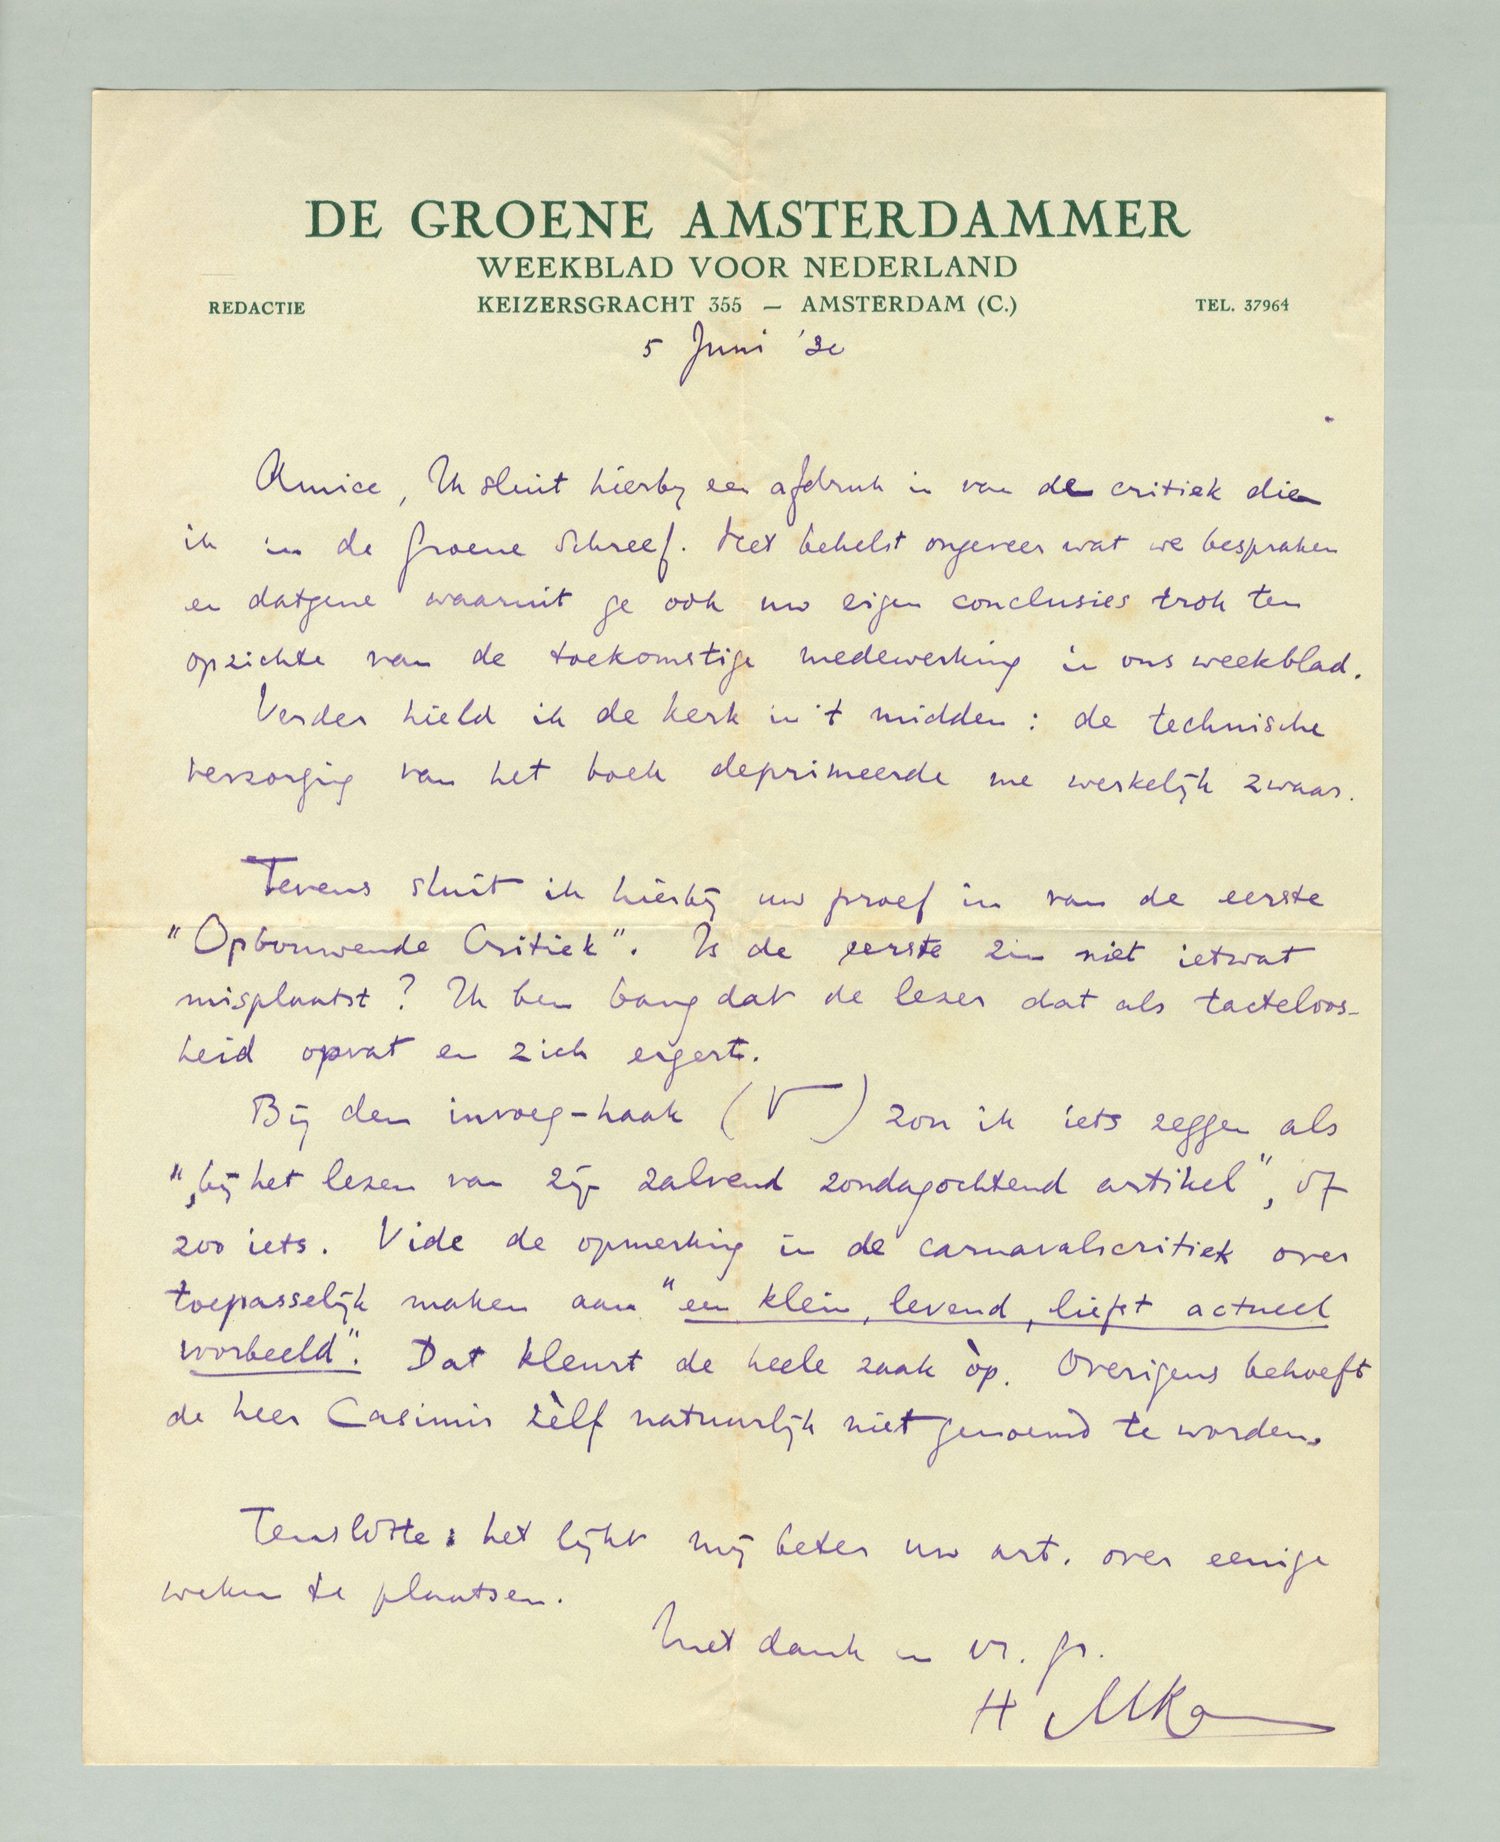 DE GROENE AMSTERDAMMER
WEEKBLAD VOOR NEDERLAND
REDACTIE KEIZERSGRACHT 355 — AMSTERDAM (C.) TEL. 37964
5 Juni '30
Amice, Ik sluit hierbij een afdruk in van de critiek die
ik in de Groene schreef. Het behelst ongeveer wat we bespraken
en datgene waaruit ge ook uw eigen conclusies trok ten
opzichte van de toekomstige medewerking in ons weekblad.
Verder hield ik de kerk in 't midden: de technische
verzorging van het boek deprimeerde me werkelijk zwaar.
Tevens sluit ik hierbij uw proef in van de eerste
"Opbouwende Critiek". Is de eerste zin niet ietwat
misplaatst? Ik ben bang dat de lezer dat als tacteloos-
heid opvat en zich ergert.
Bij den invoeg-haak (Γ) zou ik iets zeggen als
", bij het lezen van zijn zalvend zondagochtend artikel", of
zoo iets. Vide de opmerking in de carnavalscritiek over
toepasselijk maken aan "een klein, levend, liefst actueel
voorbeeld". Dat kleurt de heele zaak òp. Overigens behoeft
de heer Casimir zèlf natuurlijk niet genoemd te worden.
Tenslotte: het lijkt mij beter uw art. over eenige
weken te plaatsen.
Met dank en vr. gr.
H